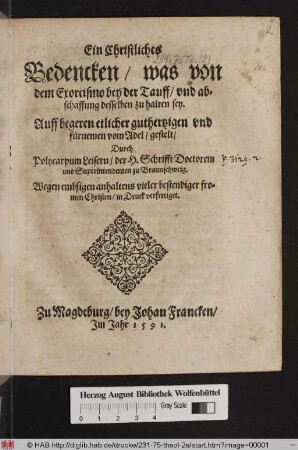 Ein Christliches
Bedencken / was von
dem Exorcismo bey der Tauff / vnd ab-
schaffung desselben zu halten sey.
Auff begeren etlicher guthertzigen vnd
fürnemen vom Adel / gestelt /
Durch
Polycarpum Leisern / der H. Schrifft Doctorem
vnd Superintendenten zu Braunschweig.
Wegen embsigen anhaltens vieler bestendiger fro-
men Christen / in Druck verfertiget.
Zu Magdeburg / bey Johan Francken /
Im Jahr 1591.
Herzog August Bibliothek Wolfenbüttel
Gray Scale
© HAB http://diglib.hab.de/drucke/231-75-theol-2s/start.htm?image=00001